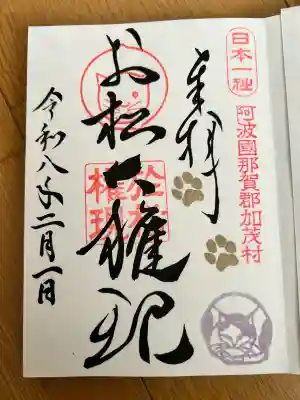 日本一社
阿波國那賀郡加茂村
奉拝
お松大権現
於松
權現
令和八年二月一日